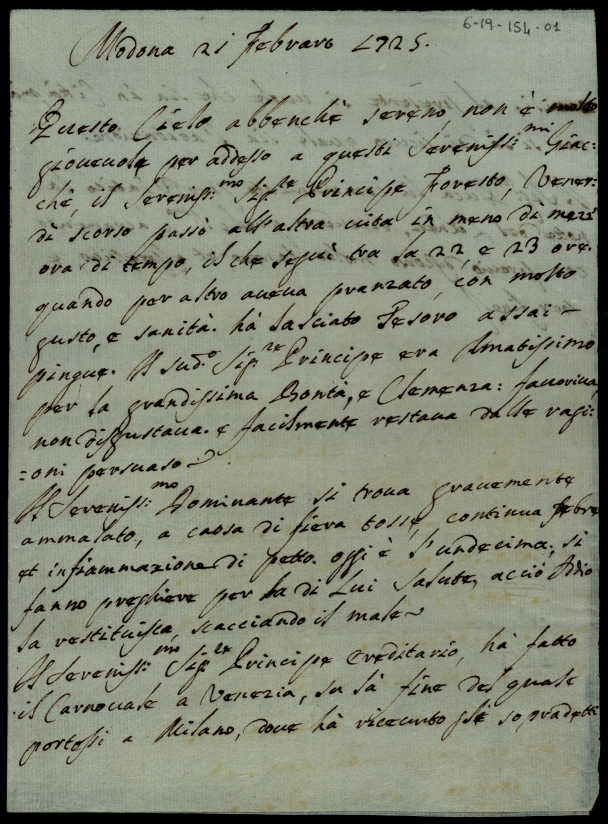 6-19-154-01
Modona 21 Febraro 1725.
Questo Cielo abbenchè sereno, non è molto
gioueuole per addesso a questi Sereniss:mi Giac:
chè, il Sereniss:mo Sig:re Principe Foresto, Vener:
dì scorso passò all'altra uita in meno di mezz
ora di tempo, il che seguì tra la 22, e 23 ore.
quando per altro aueua pranzato, con molto
gusto, e sanità. hà lasciato Tesoro assai
pingue. Il sud:o Sig:re Principe era Amatissimo
per la grandissima Bontà, e Clemenza: fauoriua,
non disgustaua. e facilmente restaua dalle ragi:
=oni persuaso
Il Sereniss:mo Dominante si troua grauemente
ammalato, a caosa di fiera tosse, continua febre
et infiammazione di petto. oggi è l'undecima; si
fanno preghiere per la di Lui Salute, acciò Iddio
la restituisca, scacciando il male
Il Sereniss:mo Sig:re Principe Ereditario, hà fatto
il Carnouale a Venezia, su la fine del quale
portossi a Milano, doue hà riceuuto gle sopradetti